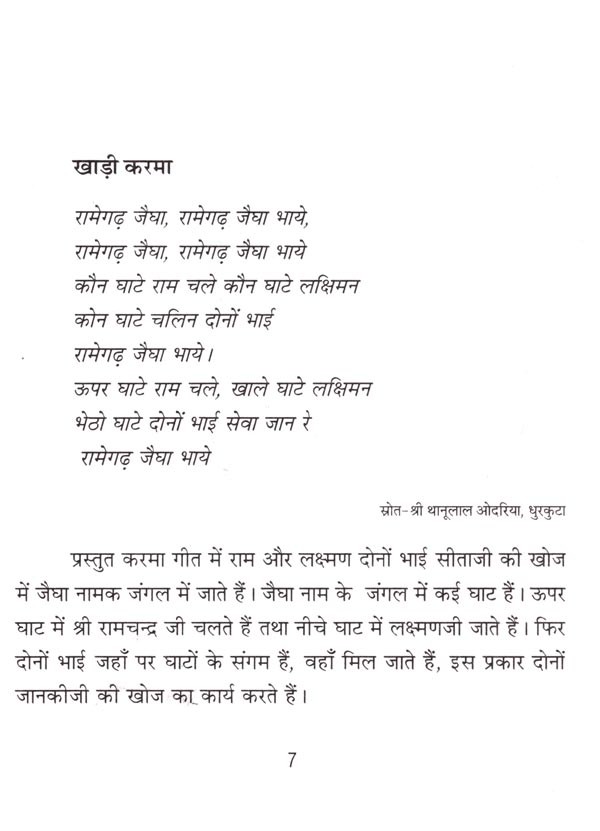 खाड़ी करमा
रामेगढ़ जैघा, रामेगढ़ जैघा भाये,
रामेगढ़ जैघा, रामेगढ़ जैघा भाये
कौन घाटे राम चले कौन घाटे लक्षिमन
कोन घाटे चलिन दोनों भाई
रामेगढ़ जैघा भाये।
ऊपर घाटे राम चले, खाले घाटे लक्षिमन
भेठो घाटे दोनों भाई सेवा जान रे
रामेगढ़ जैघा भाये
स्रोत- श्री थानूलाल ओदरिया, धुरकुटा
प्रस्तुत करमा गीत में राम और लक्ष्मण दोनों भाई सीताजी की खोज
में जैघा नामक जंगल में जाते हैं। जैघा नाम के जंगल में कई घाट हैं। ऊपर
घाट में श्री रामचन्द्र जी चलते हैं तथा नीचे घाट में लक्ष्मणजी जाते हैं। फिर
दोनों भाई जहाँ पर घाटों के संगम हैं, वहाँ मिल जाते हैं, इस प्रकार दोनों
जानकीजी की खोज का कार्य करते हैं।
7